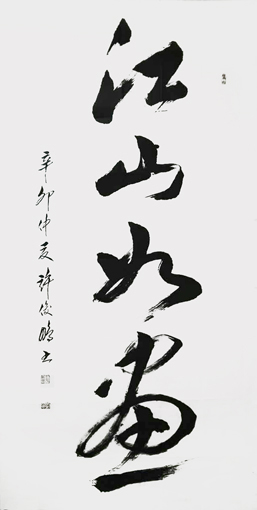 江山如畫
辛卯仲夏許俊鵬書